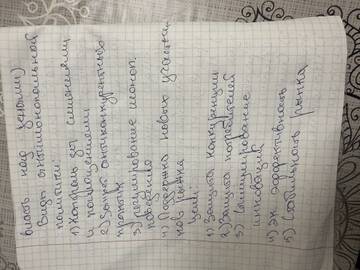 власть над ценами)
Виды антимонопольной
политики:
1) Контроль за слияниями
и поглощениями
2) Запрет антиконкурентных
практик
3) регулирование моноп.
поведения
4) Поддержка новых участни
ков рынка
Цели:
1) Защита конкуренции
2) Защита потребителей
3) Стимулирование
инноваций
4) эк эффективность
5) Стабильность рынка